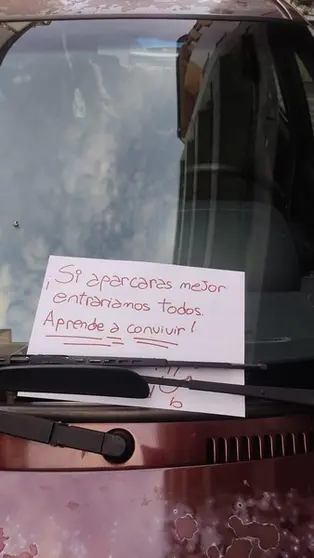 ¡Si aparcaras mejor
entraríamos todos.
Aprende a convivir!